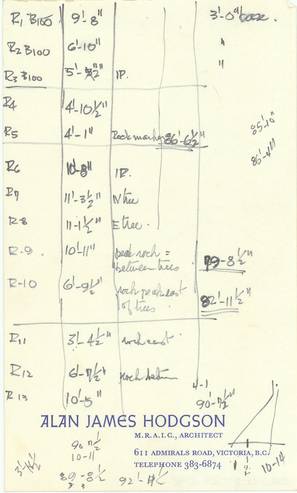 R1 B100 9'-8" 3'-0"
R2 B100 6'-10" "
R3 B100 5'- IP. "
R4 4'-10½"
R5 4'-1" Rock 86'-6½"
85'-10"
86'-6½"
R6 10'-8" IR.
R7 11'-3½" N tree
R-8 11-1½" E tree.
R-9. 10'-11" peak rock =
between trees. 79-8½"
R-10 6'-9½" rock peak east
of trees. 82'-11½"
R11 3'-4½" rock east
R12 6'-7½" rock between
R13 10'-5" 4-1
90-7½"
ALAN JAMES HODGSON
M.R.A.I.C., ARCHITECT
611 ADMIRALS ROAD, VICTORIA, B.C.
TELEPHONE 383-6874
90 7½
10-11
10-10